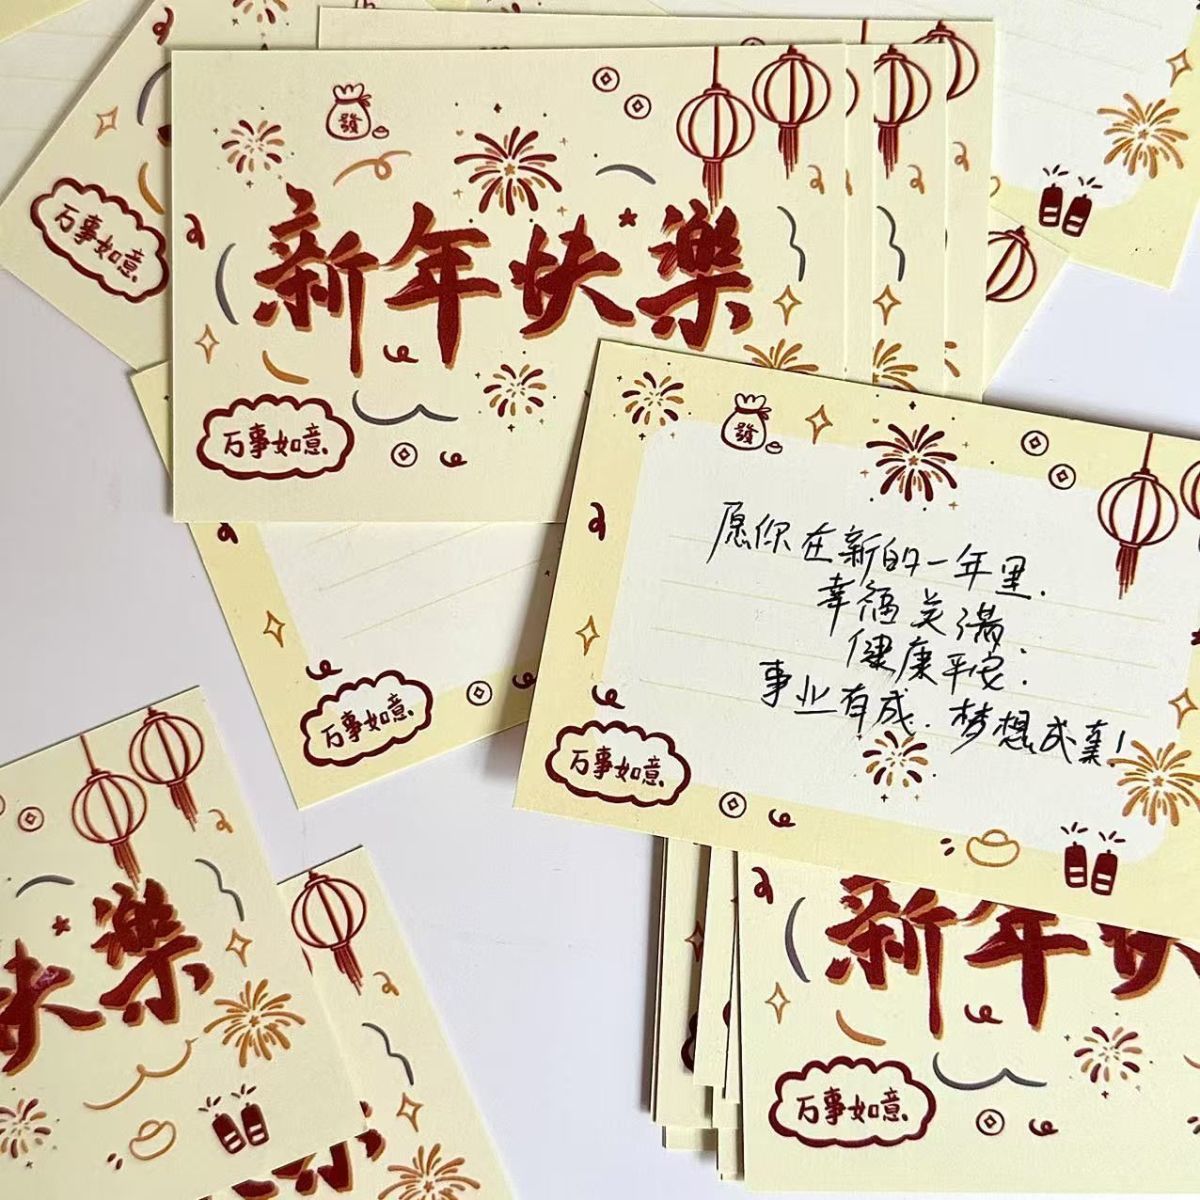 發
新年快樂
万事如意
万事如意
發
愿你在新的一年里.
幸福美满.
健康平安.
事业有成.梦想成真!
万事如意
万事如意
快樂
新年快
万事如意